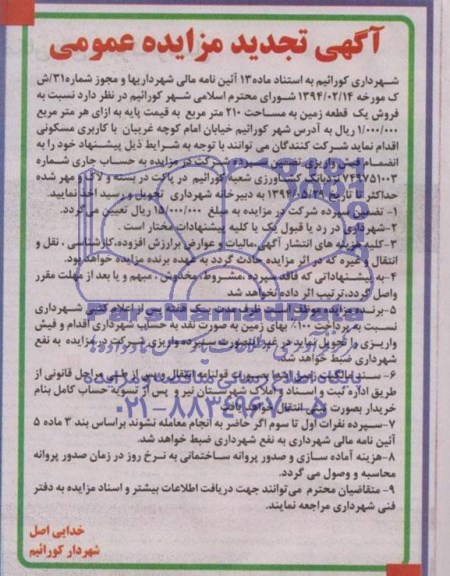 آگهی تجدید مزایده عمومی
شهرداری کورائیم به استناد ماده۱۳ آئین نامه مالی شهرداریها و مجوز شماره۳۱/ش
ک مورخه ۱۳۹۴/۰۲/۱۴ شورای محترم اسلامی شهر کورائیم در نظر دارد نسبت به
فروش یک قطعه زمین به مساحت ۲۱۰ متر مربع به قیمت پایه به ازای هر متر مربع
۱/۰۰۰/۰۰۰ ریال به آدرس شهر کورائیم خیابان امام کوچه غریبان با کاربری مسکونی
اقدام نماید شرکت کنندگان می توانند با توجه به شرایط ذیل پیشنهاد خود را به
انضمام فیش واریزی تضمین سپرده شرکت در مزایده به حساب جاری شماره
۷۴۹۷۵۱۰۰۳ نزد بانک کشاورزی شعبه کورائیم در پاکت در بسته و لاک و مهر شده
حداکثر تا تاریخ ۱۳۹۴/۰۵/۲۹ به دبیرخانه شهرداری تحویل و رسید اخذ نمایید.
۱- تضمین سپرده شرکت در مزایده به مبلغ ۱۵/۰۰۰/۰۰۰ ریال تعیین می گردد.
۲-شهرداری در رد یا قبول یک یا کلیه پیشنهادات مختار است .
۳-کلیه هزینه های انتشار آگهی،مالیات و عوارض برارزش افزوده،کارشناسی ، نقل و
انتقال و غیره که در اثر مزایده حادث گردد به عهده برنده مزایده خواهد بود.
۴-به پیشنهاداتی که فاقد سپرده ،مشروط،مخدوش ، مبهم و یا بعد از مهلت مقرر
واصل گردد،ترتیب اثر داده نخواهد شد
۵-برنده مزایده موظف است ظرف مدت یک هفته پس از اعلام کتبی شهرداری
نسبت به پرداخت ۱۰۰٪ بهای زمین به صورت نقد به حساب شهرداری اقدام و فیش
واریزی را تحویل نماید در غیر اینصورت سپرده واریزی شرکت در مزایده به نفع
شهرداری ضبط خواهد شد.
۶- سند مالکیت زمین بصورت قولنامه انتقال و پس از طی مراحل قانونی از
طریق اداره ثبت و اسناد و املاک شهرستان نیر و پس از تسویه حساب کامل بنام
خریدار بصورت انتقال خواهد یافت
۷-سپرده نفرات اول تا سوم اگر حاضر به انجام معامله نشوند براساس بند ۳ ماده ۵
آئین نامه مالی شهرداری به نفع شهرداری ضبط خواهد شد.
۸-هزینه آماده سازی و صدور پروانه ساختمانی به نرخ روز در زمان صدور پروانه
محاسبه و وصول می گردد.
۹- متقاضیان محترم می توانند جهت دریافت اطلاعات بیشتر و اسناد مزایده به دفتر
فنی شهرداری مراجعه نمایند.
خدایی اصل
شهردار کورائیم
ParsNamadData
پایگاه اطلاع رسانی مناقصه و مزایده
۰۲۱-۸۸۳۴۹۶۷۰-۵